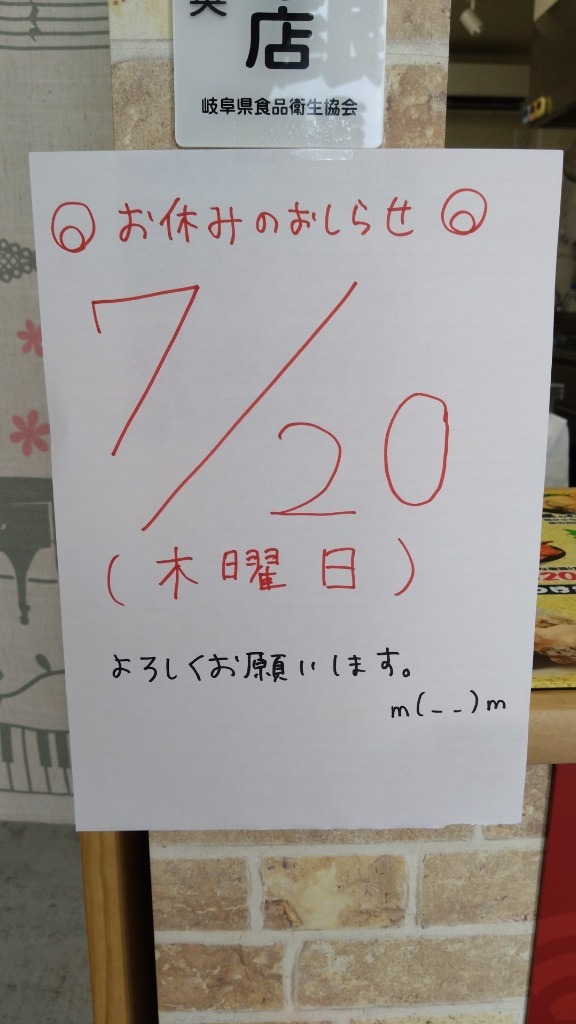 店
岐阜県食品衛生協会
お休みのおしらせ
7/20
(木曜日)
よろしくお願いします。
m(_ _)m